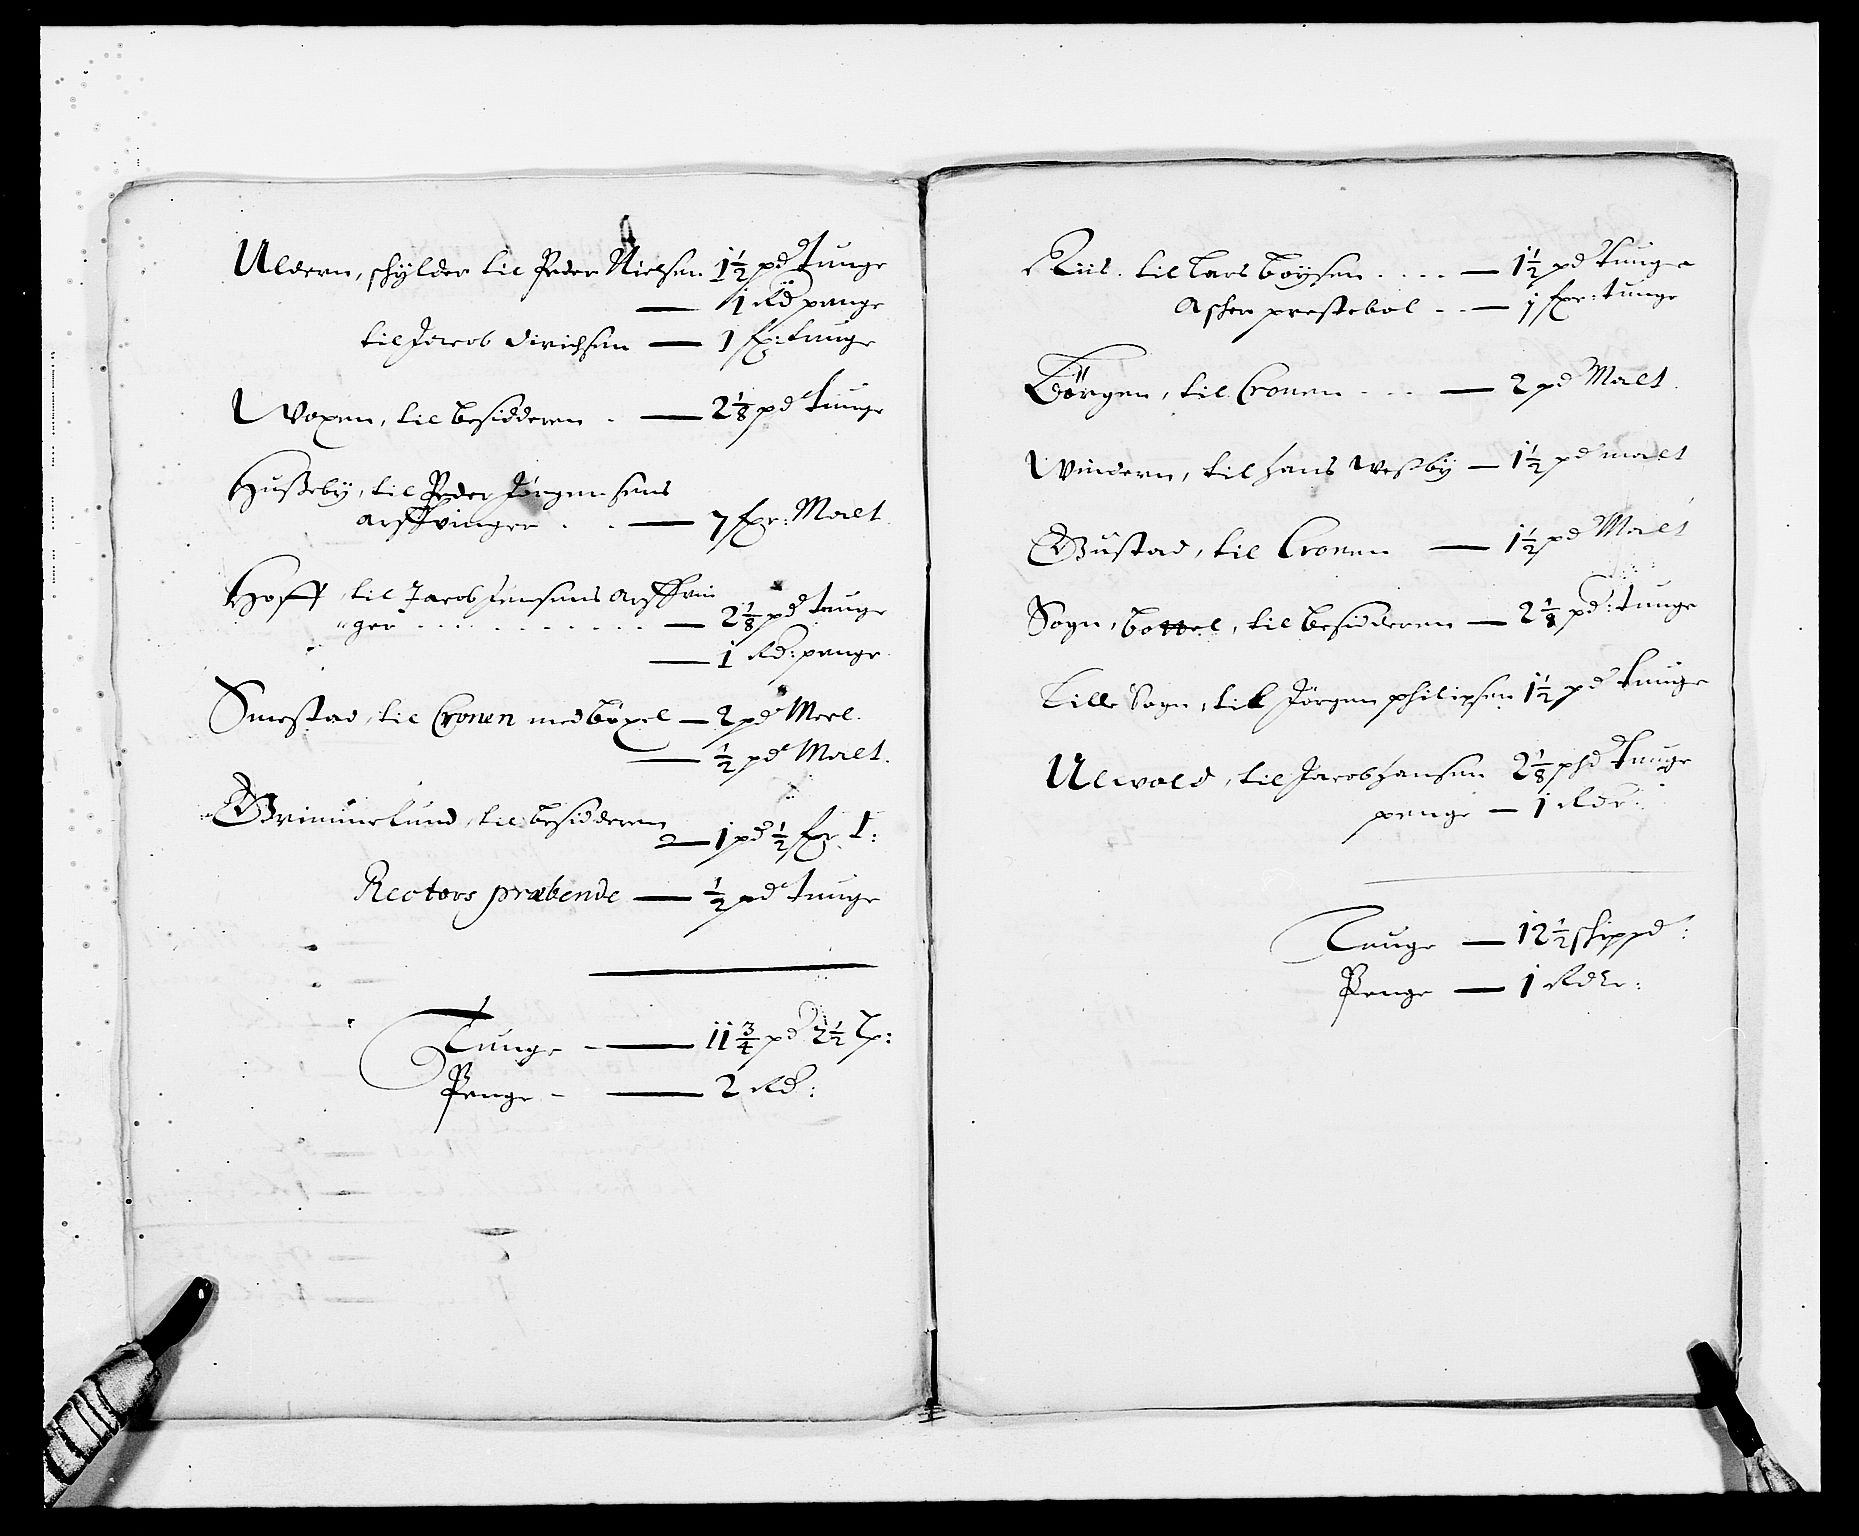 Uldern, schylder til Peder Nielsen 1½ pd Tunge
— 1 Rd penge
til Jacob Dirichsen — 1 fr: tunge
Woxen, til besidderen . — 2⅛ pd tunge
Husseby, til Peder Jørgensens
arffvinger . . — 7 fr: Malt
Hoff, til Jacob Jensens arffvin
"ger . . . . . . . . . — 2⅛ pd tunge
— 1 Rd: penge
Smestad, til Cronen med bøxel — 2 pd Meel.
— ½ pd Malt.
Grimmelund, til besidderen
— 1 pd ½ fr. t:
Rectors præbende — ½ pd tunge
Tunge - — 11¾ pd 2½ Lp:
Penge - — 2 Rd:
Riis. til Lars bøysen . . . . — 1½ pd tunge
Asker prestebol - - — 1 fr: tunge
Börgen, til Cronen - - - — 2 pd Malt.
Windern, til hans Westby — 1½ pd malt
Gustad, til Cronen — 1½ pd Malt
Sogn, bottel, til besidderen — 2⅛ pd: tunge
Lille Sogn, til Jørgen philipsen 1½ pd tunge
Ulwold, til Jacob hansen 2⅛ phd Tunge
penge — 1 Rdr:
Tunge — 12½ skippd:
Penge — 1 Rdlr: